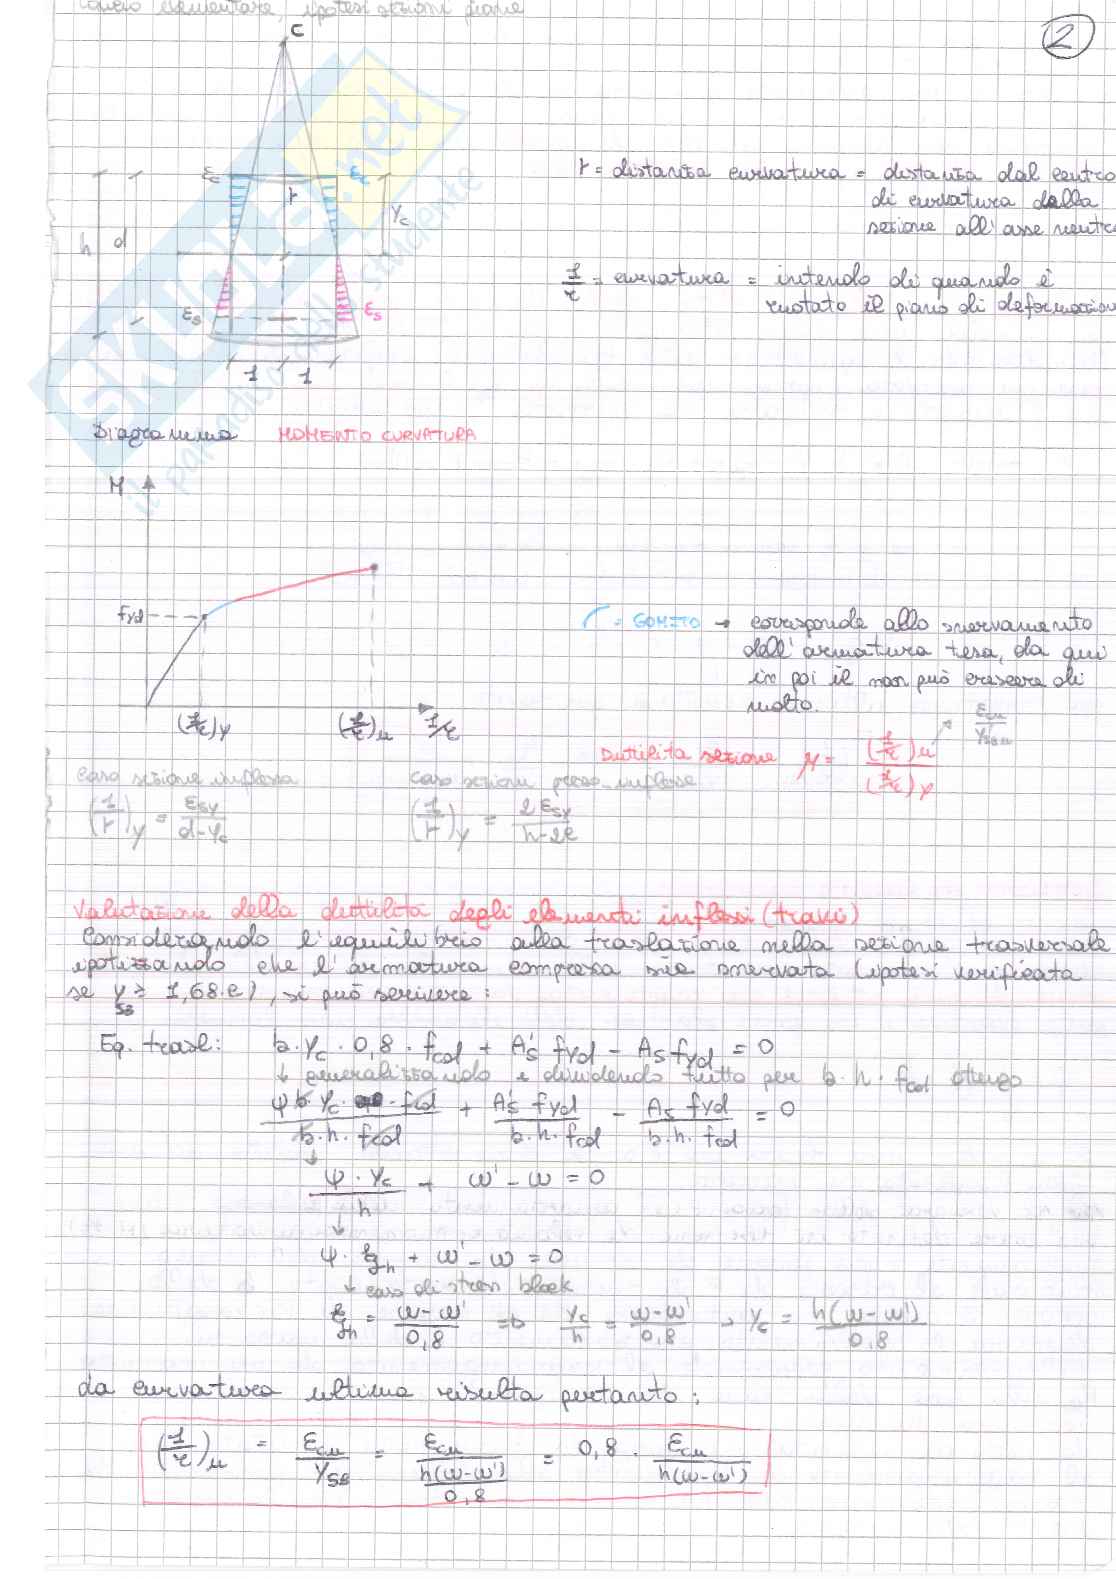 concio elementare, ipotesi sezioni piane
2
C
εc
εc
r
yc
h
d
εs
εs
1
1
r = distanza curvatura = distanza dal centro
di curvatura della
sezione all'asse neutro
1/r = curvatura = intendo di quando è
ruotato il piano di deformazione
SKUOLA.net
il paradiso dello studente
Diagramma MOMENTO CURVATURA
M
fyd
(1/r)y
(1/r)u
1/r
= GOMITO → corrisponde allo snervamento
dell'armatura tesa, da qui
in poi il non può crescere di
molto.
Duttilità sezione μ = (1/r)u / (1/r)y
εcu / yssu
caso sezione inflessa
(1/r)y = εsy / (d - yc)
caso sezioni presso-inflesse
(1/r)y = 2εsy / (h-2c)
Valutazione della duttilità degli elementi inflessi (travi)
Considerando l'equilibrio alla traslazione nella sezione trasversale
ipotizzando che l'armatura compressa sia snervata (ipotesi verificata
se yss ≥ 1,68·c), si può scrivere:
Eq. trasl: b·yc·0,8·fcd + A's fyd - As fyd = 0
↓ generalizzando e dividendo tutto per b·h·fcd ottengo
ψ b·yc·fcd / b·h·fcd + A's fyd / b·h·fcd - As fyd / b·h·fcd = 0
↓
ψ·yc / h + ω' - ω = 0
↓
ψ·ξh + ω' - ω = 0
↓ caso di stress block
ξh = (ω-ω') / 0,8 ⇒ yc/h = (ω-ω') / 0,8 → yc = h(ω-ω') / 0,8
da curvatura ultima risulta pertanto:
(1/r)u = εcu / yss = εcu / (h(ω-ω') / 0,8) = 0,8 · εcu / h(ω-ω')